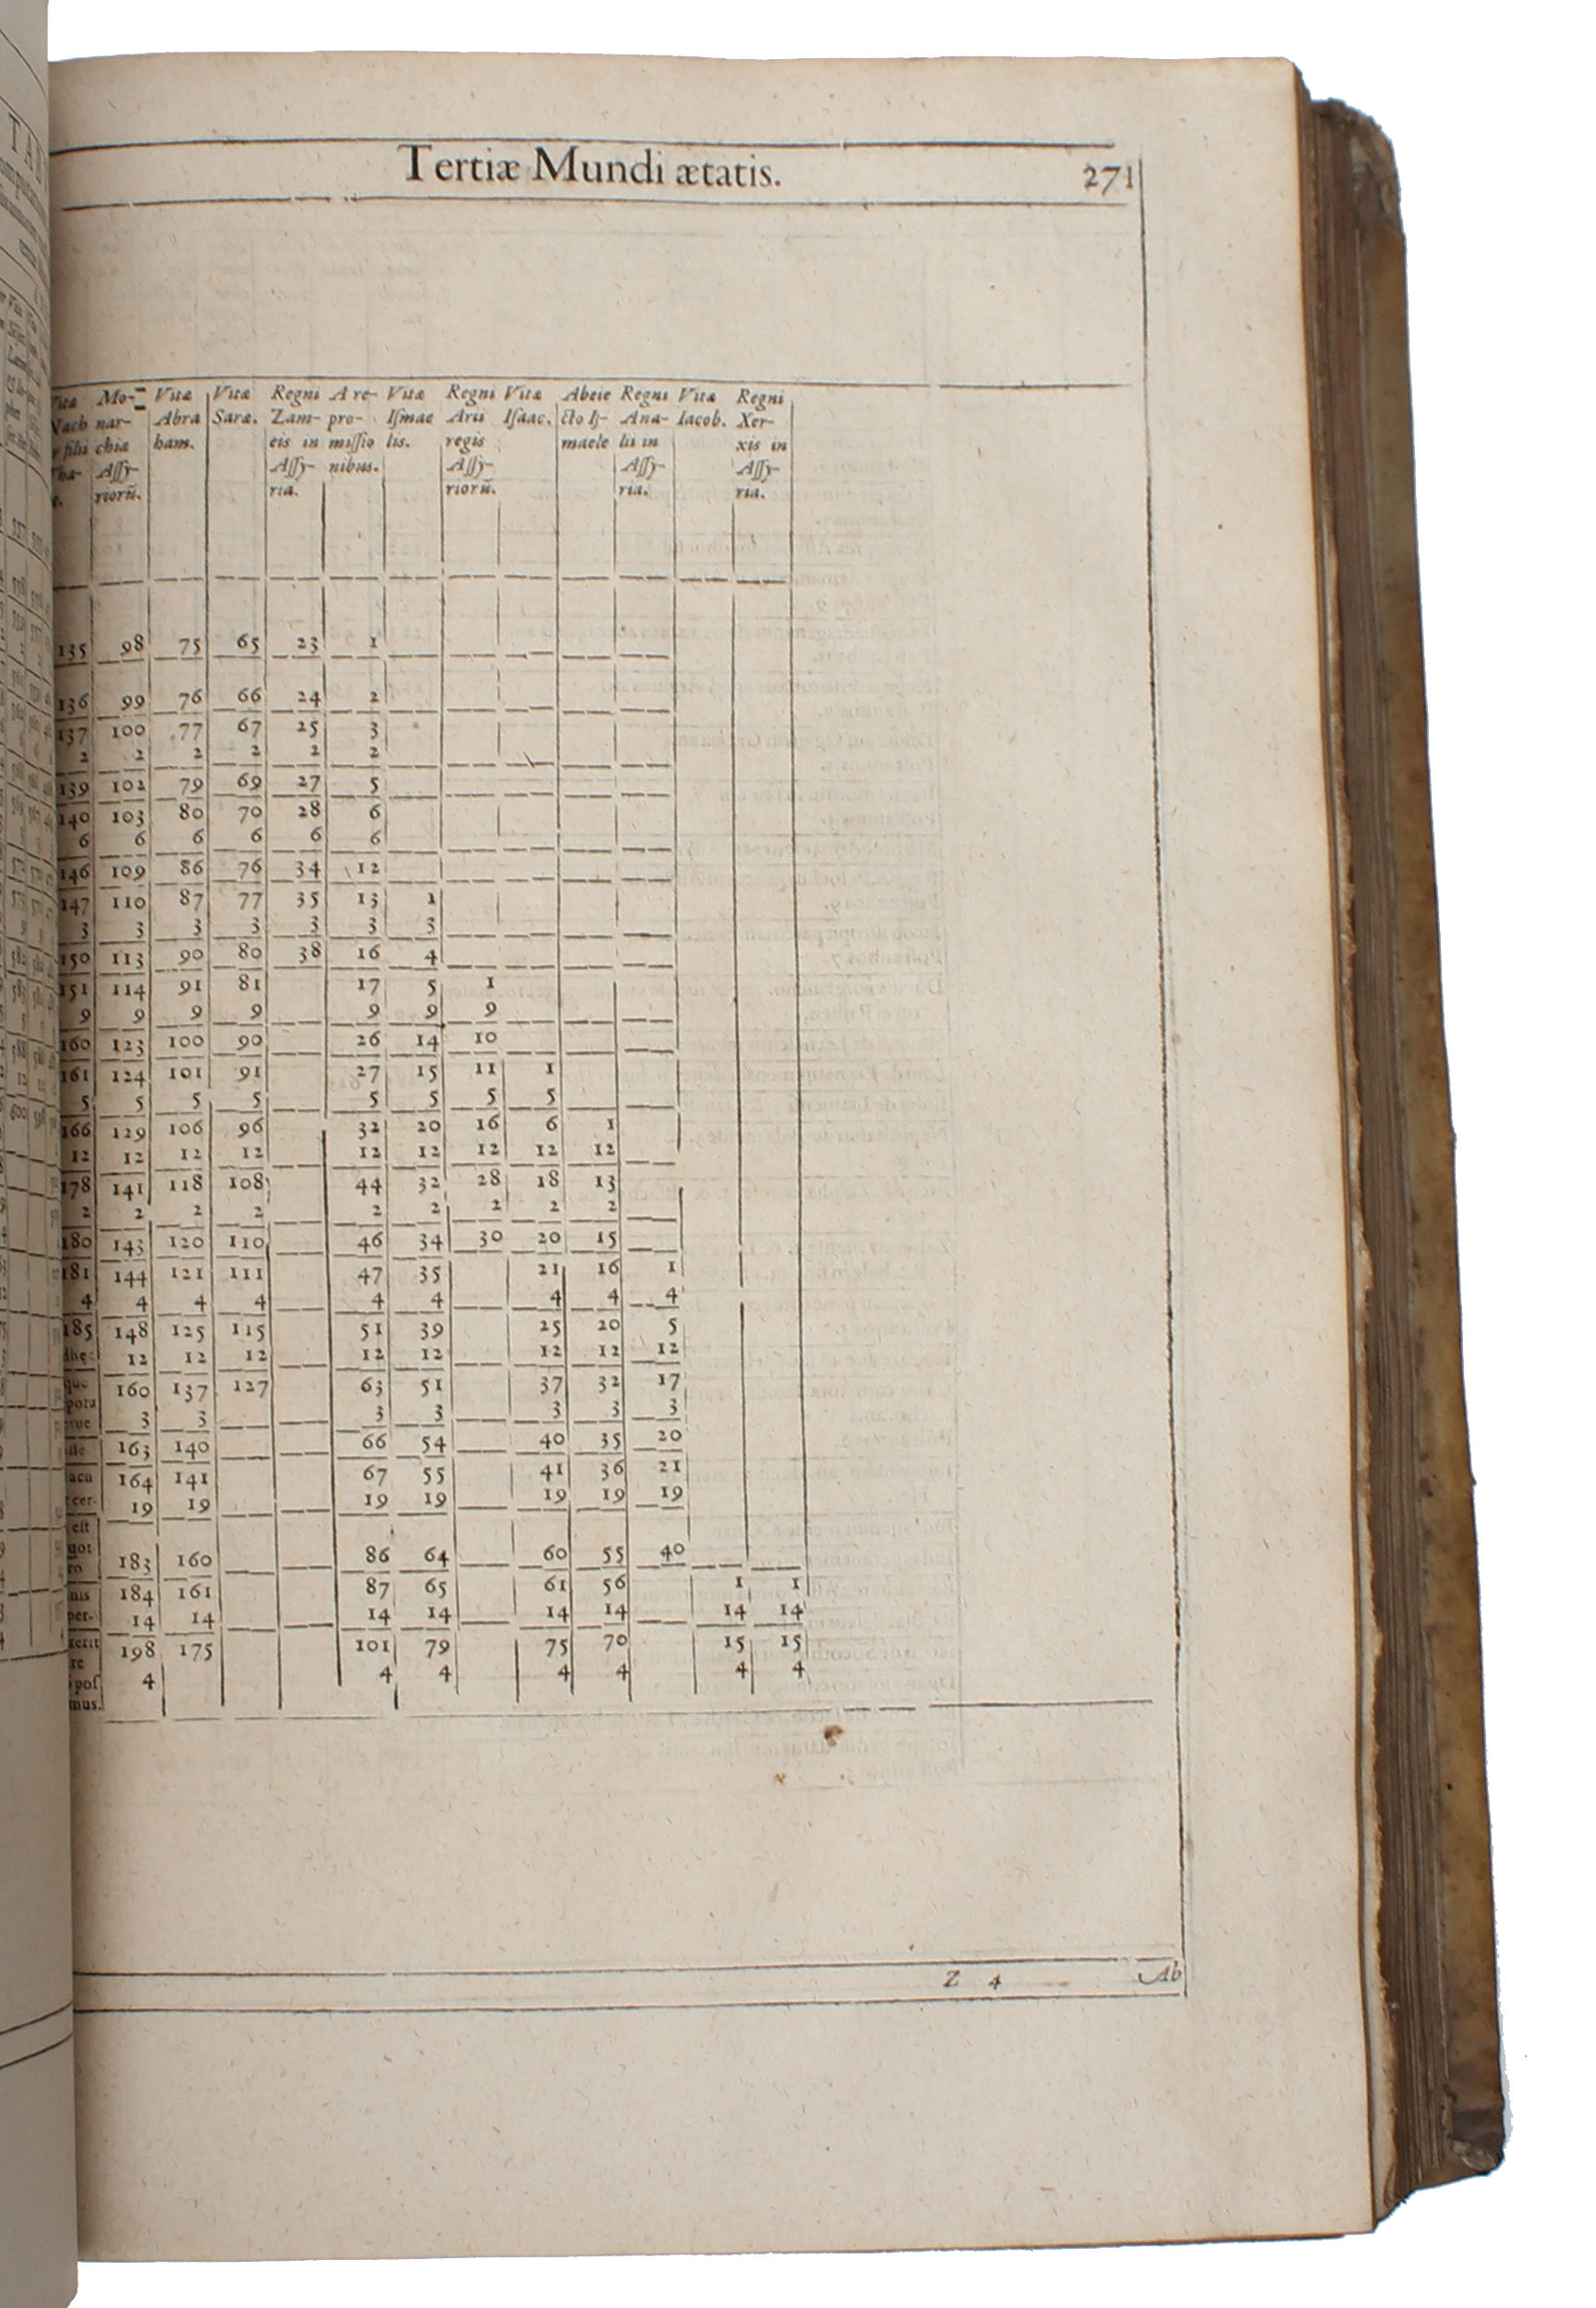 Tertiæ Mundi ætatis. 271
Mo- Vitæ Vitæ Regni A re- Vitæ Regni Vitæ Abeie Regni Vitæ Regni
nar- Abra Saræ. Zam- pro- Iſmae Arii Iſaac. cto Iſ- Ana- Iacob. Xer-
filii chiæ ham. eis in miſſio lis. regis maele lii in xis in
Aſſy- Aſſy- nibus. Aſſy- Aſſy- Aſſy-
riorũ. ria. riorũ. ria. ria.
135 98 75 65 23 1
136 99 76 66 24 2
137 100 77 67 25 3
2 2 2 2 2 2
139 102 79 69 27 5
140 103 80 70 28 6
6 6 6 6 6 6
146 109 86 76 34 12
147 110 87 77 35 13 1
3 3 3 3 3 3 3
150 113 90 80 38 16 4
151 114 91 81 17 5 1
9 9 9 9 9 9 9
160 123 100 90 26 14 10
161 124 101 91 27 15 11 1
5 5 5 5 5 5 5 5
166 129 106 96 32 20 16 6 1
12 12 12 12 12 12 12 12 12
178 141 118 108 44 32 28 18 13
2 2 2 2 2 2 2 2 2
180 143 120 110 46 34 30 20 15
181 144 121 111 47 35 21 16 1
4 4 4 4 4 4 4 4 4
185 148 125 115 51 39 25 20 5
12 12 12 12 12 12 12 12
160 137 127 63 51 37 32 17
3 3 3 3 3 3 3
163 140 66 54 40 35 20
164 141 67 55 41 36 21
19 19 19 19 19 19 19
eſt
183 160 86 64 60 55 40
184 161 87 65 61 56 1 1
14 14 14 14 14 14 14 14
198 175 101 79 75 70 15 15
4 4 4 4 4 4 4
mus.
Z 4 Ab